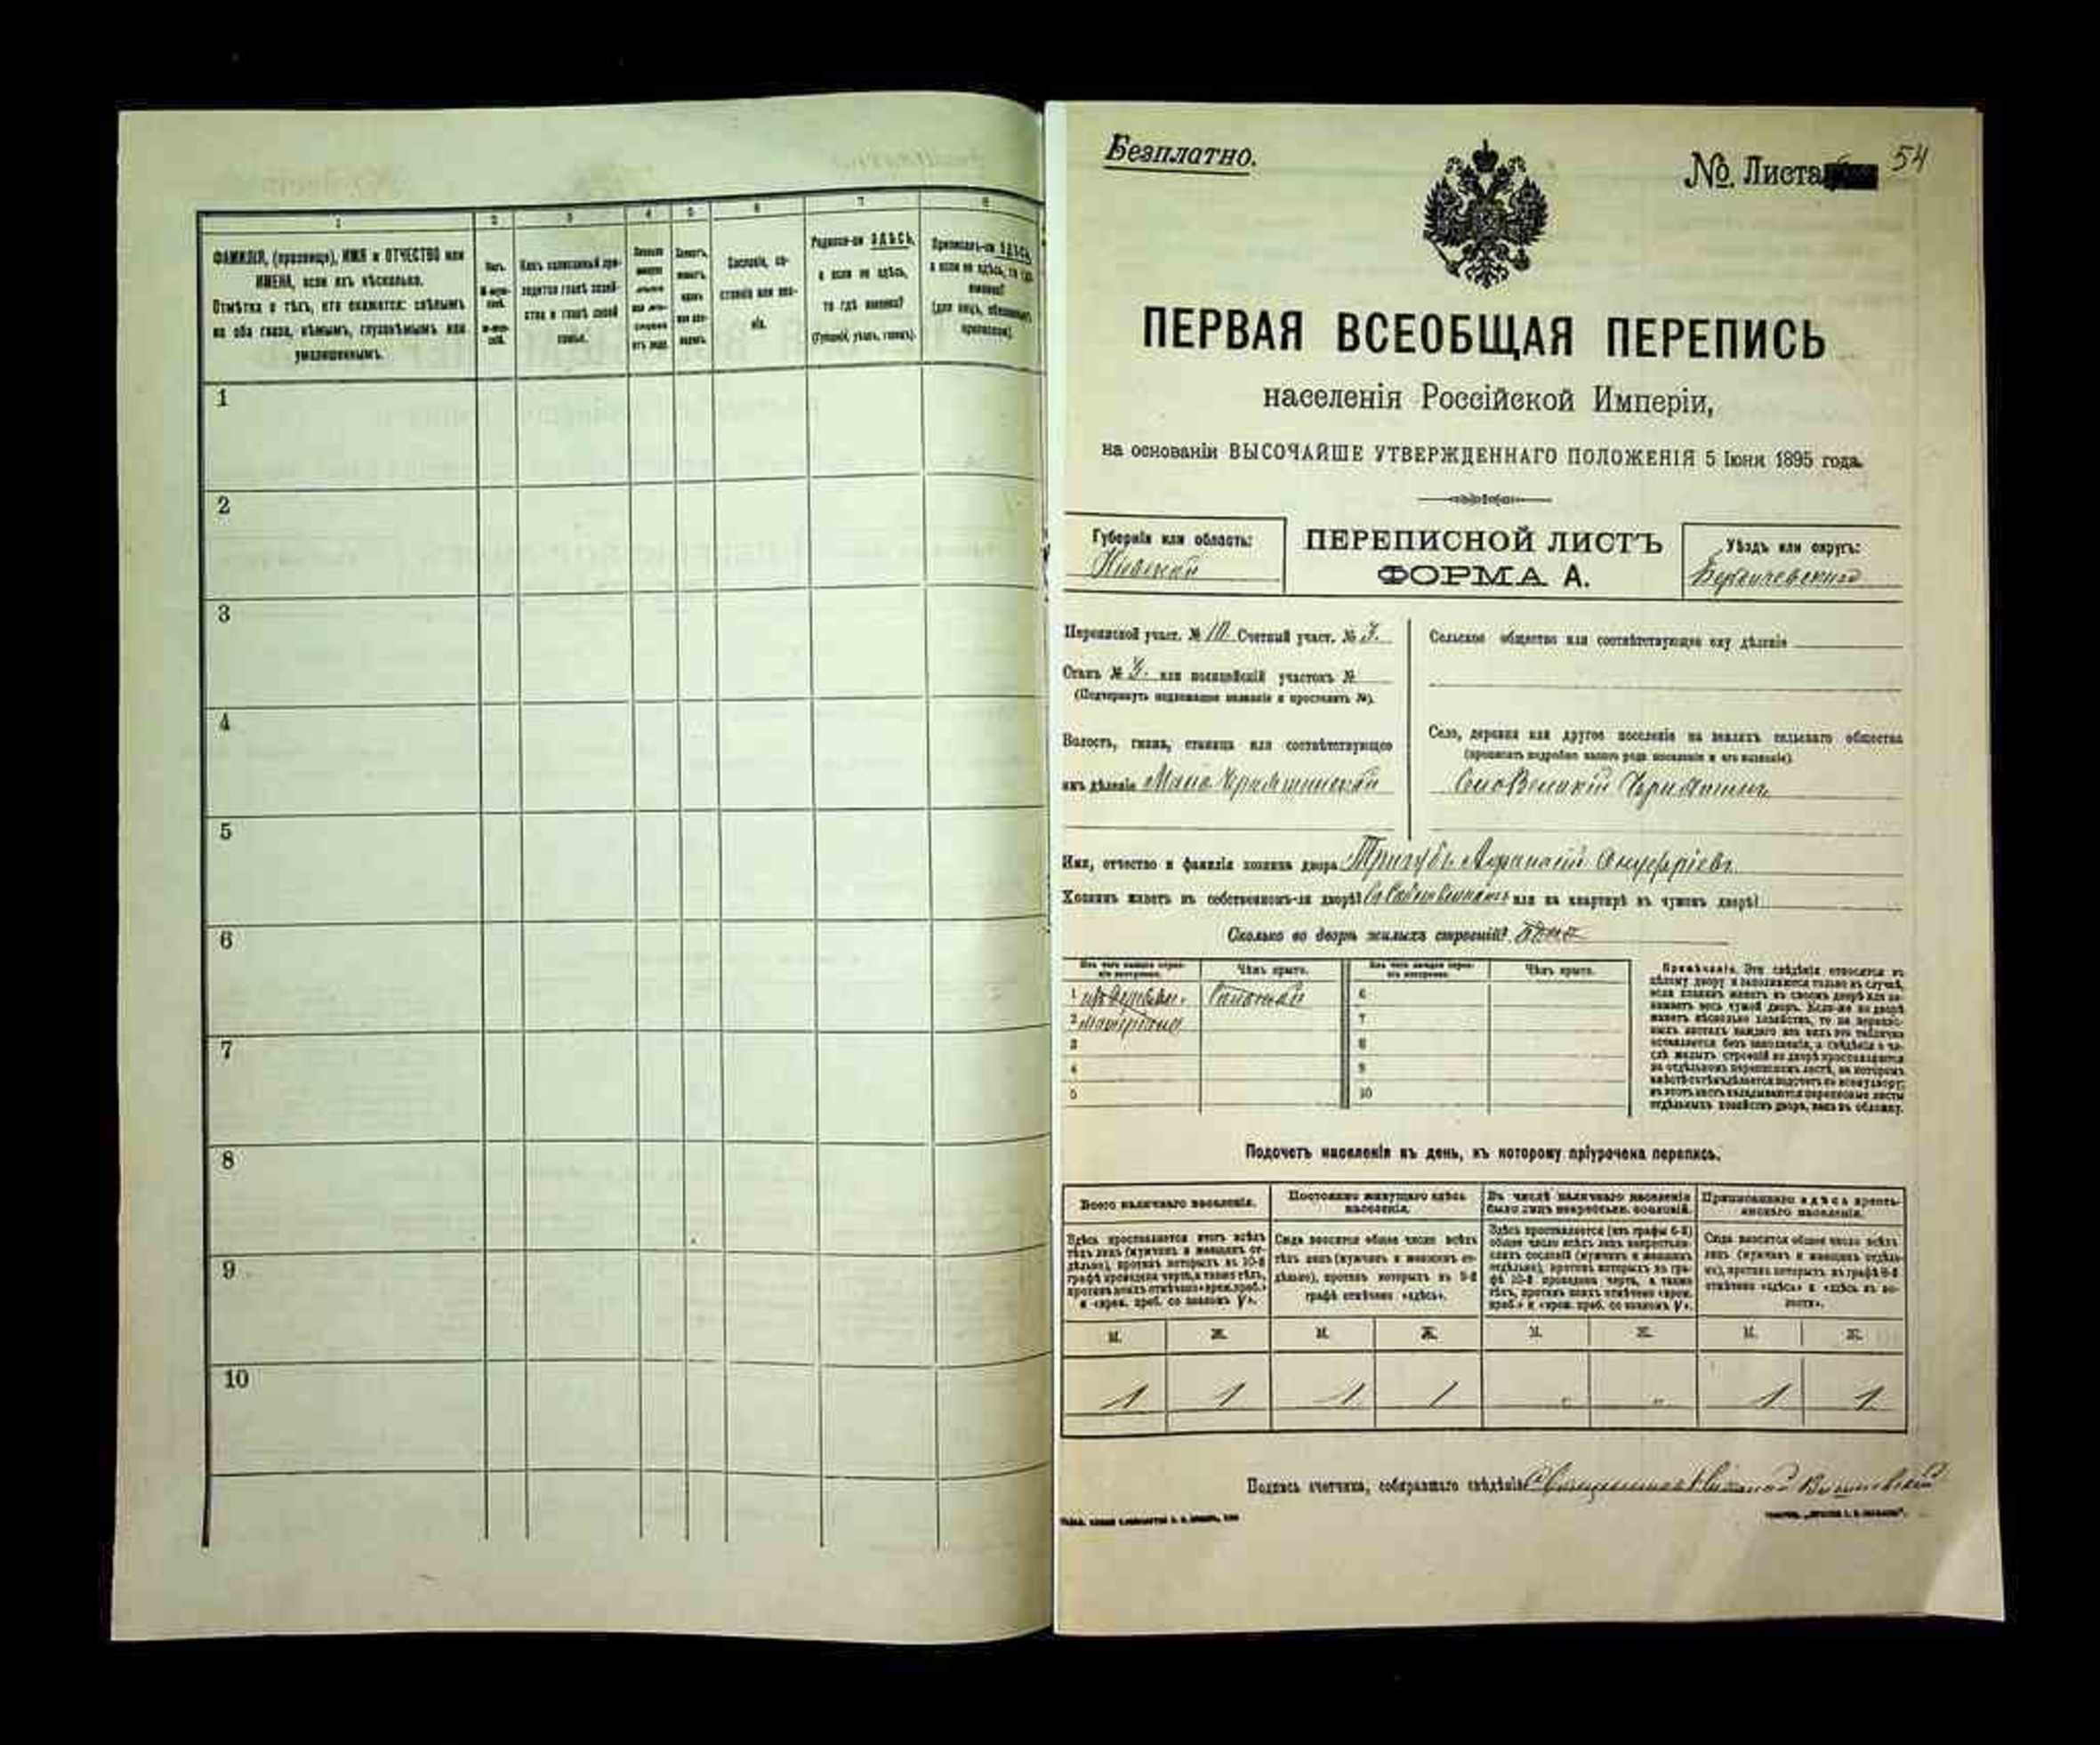 1 2 3 4 5 6 7 8
ФАМИЛІЯ, (прозвище), ИМЯ и ОТЧЕСТВО или
ИМЕНА, если ихъ нѣсколько.
Отмѣтка о тѣхъ, кто окажется: слѣпымъ
на оба глаза, нѣмымъ, глухонѣмымъ или
умалишеннымъ.
Полъ.
Какъ записанный при-
ходится главѣ хозяй-
ства и главѣ своей
семьи.
Сословіе, со-
стояніе или зва-
ніе.
Родился-ли ЗДѢСЬ,
а если не здѣсь,
то гдѣ именно?
(Губернія, уѣздъ, городъ).
Приписанъ-ли ЗДѢСЬ,
а если не здѣсь, то гдѣ
именно?
(для лицъ, обязанныхъ
припискою).
1
2
3
4
5
6
7
8
9
10
Безплатно.
№ Листа 54
ПЕРВАЯ ВСЕОБЩАЯ ПЕРЕПИСЬ
населенія Россійской Имперіи,
на основаніи ВЫСОЧАЙШЕ УТВЕРЖДЕННАГО ПОЛОЖЕНІЯ 5 Іюня 1895 года.
Губернія или область:
Кіевской
ПЕРЕПИСНОЙ ЛИСТЪ
ФОРМА А.
Уѣздъ или округъ:
Бердичевскаго
Переписной участ. № 10 Счетный участ. № 3.
Станъ № 3. или полицейскій участокъ №
(Подчеркнуть подлежащее названіе и проставить №).
Волость, гмина, станица или соотвѣтствующее
имъ дѣленіе Мало Чернятинской
Сельское общество или соотвѣтствующее ему дѣленіе
Село, деревня или другое поселеніе на земляхъ сельскаго общества
(прописать подробно какого рода поселеніе и его названіе).
Село Великій Чернятинъ
Имя, отчество и фамилія хозяина двора Тригубъ Афанасій Онуфріевъ
Хозяинъ живетъ въ собственномъ-ли дворѣ? въ собственномъ или на квартирѣ въ чужомъ дворѣ?
Сколько во дворѣ жилыхъ строеній? Одно
Изъ чего каждое строе-
ніе построено.
Чѣмъ крыто.
Изъ чего каждое строе-
ніе построено.
Чѣмъ крыто.
1 изъ деревян. Соломой 6
2 матеріала 7
3 8
4 9
5 10
Примѣчаніе. Эти свѣдѣнія относятся къ
цѣлому двору и заполняются только въ случаѣ,
если хозяинъ живетъ въ своемъ дворѣ или за-
нимаетъ весь чужой дворъ. Если-же во дворѣ
живетъ нѣсколько хозяйствъ, то на перепис-
ныхъ листахъ каждаго изъ нихъ эта табличка
оставляется безъ заполненія, а свѣдѣнія о чи-
слѣ жилыхъ строеній во дворѣ проставляются
на отдѣльномъ переписномъ листѣ, на которомъ
вмѣстѣ съ тѣмъ дѣлается подсчетъ по всему двору;
въ этотъ листъ вкладываются переписные листы
отдѣльныхъ хозяйствъ двора, какъ въ обложку.
Подсчетъ населенія въ день, къ которому пріурочена перепись.
Всего наличнаго населенія.
Постоянно живущаго здѣсь
населенія.
Въ числѣ наличнаго населенія
было лицъ некрестьян. сословій.
Приписаннаго здѣсь кресть-
янскаго населенія.
Здѣсь проставляется итогъ всѣхъ
тѣхъ лицъ (мужчинъ и женщинъ от-
дѣльно), противъ которыхъ въ 10-й
графѣ проведена черта, а также тѣхъ,
противъ коихъ отмѣчено «врем. преб.»
и «врем. преб. со знакомъ V».
Сюда вносится общее число всѣхъ
тѣхъ лицъ (мужчинъ и женщинъ от-
дѣльно), противъ которыхъ въ 9-й
графѣ отмѣчено «здѣсь».
Здѣсь проставляется (изъ графы 6-й)
общее число всѣхъ лицъ некрестьян-
скихъ сословій (мужчинъ и женщинъ
отдѣльно), противъ которыхъ въ гра-
фѣ 10-й проведена черта, а также
тѣхъ, противъ коихъ отмѣчено «врем.
преб.» и «врем. преб. со знакомъ V».
Сюда вносится общее число всѣхъ
лицъ (мужчинъ и женщинъ отдѣль-
но), противъ которыхъ въ графѣ 8-й
отмѣчено «здѣсь» и «здѣсь въ во-
лости».
М. Ж. М. Ж. М. Ж. М. Ж.
1 1 1 1 " " 1 1
Подпись счетчика, собиравшаго свѣдѣнія Священникъ